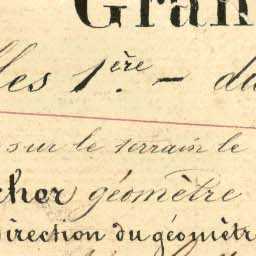 Gran
lles 1ère. - du
sur le terrain le
cher géomètre
Direction du géomètr